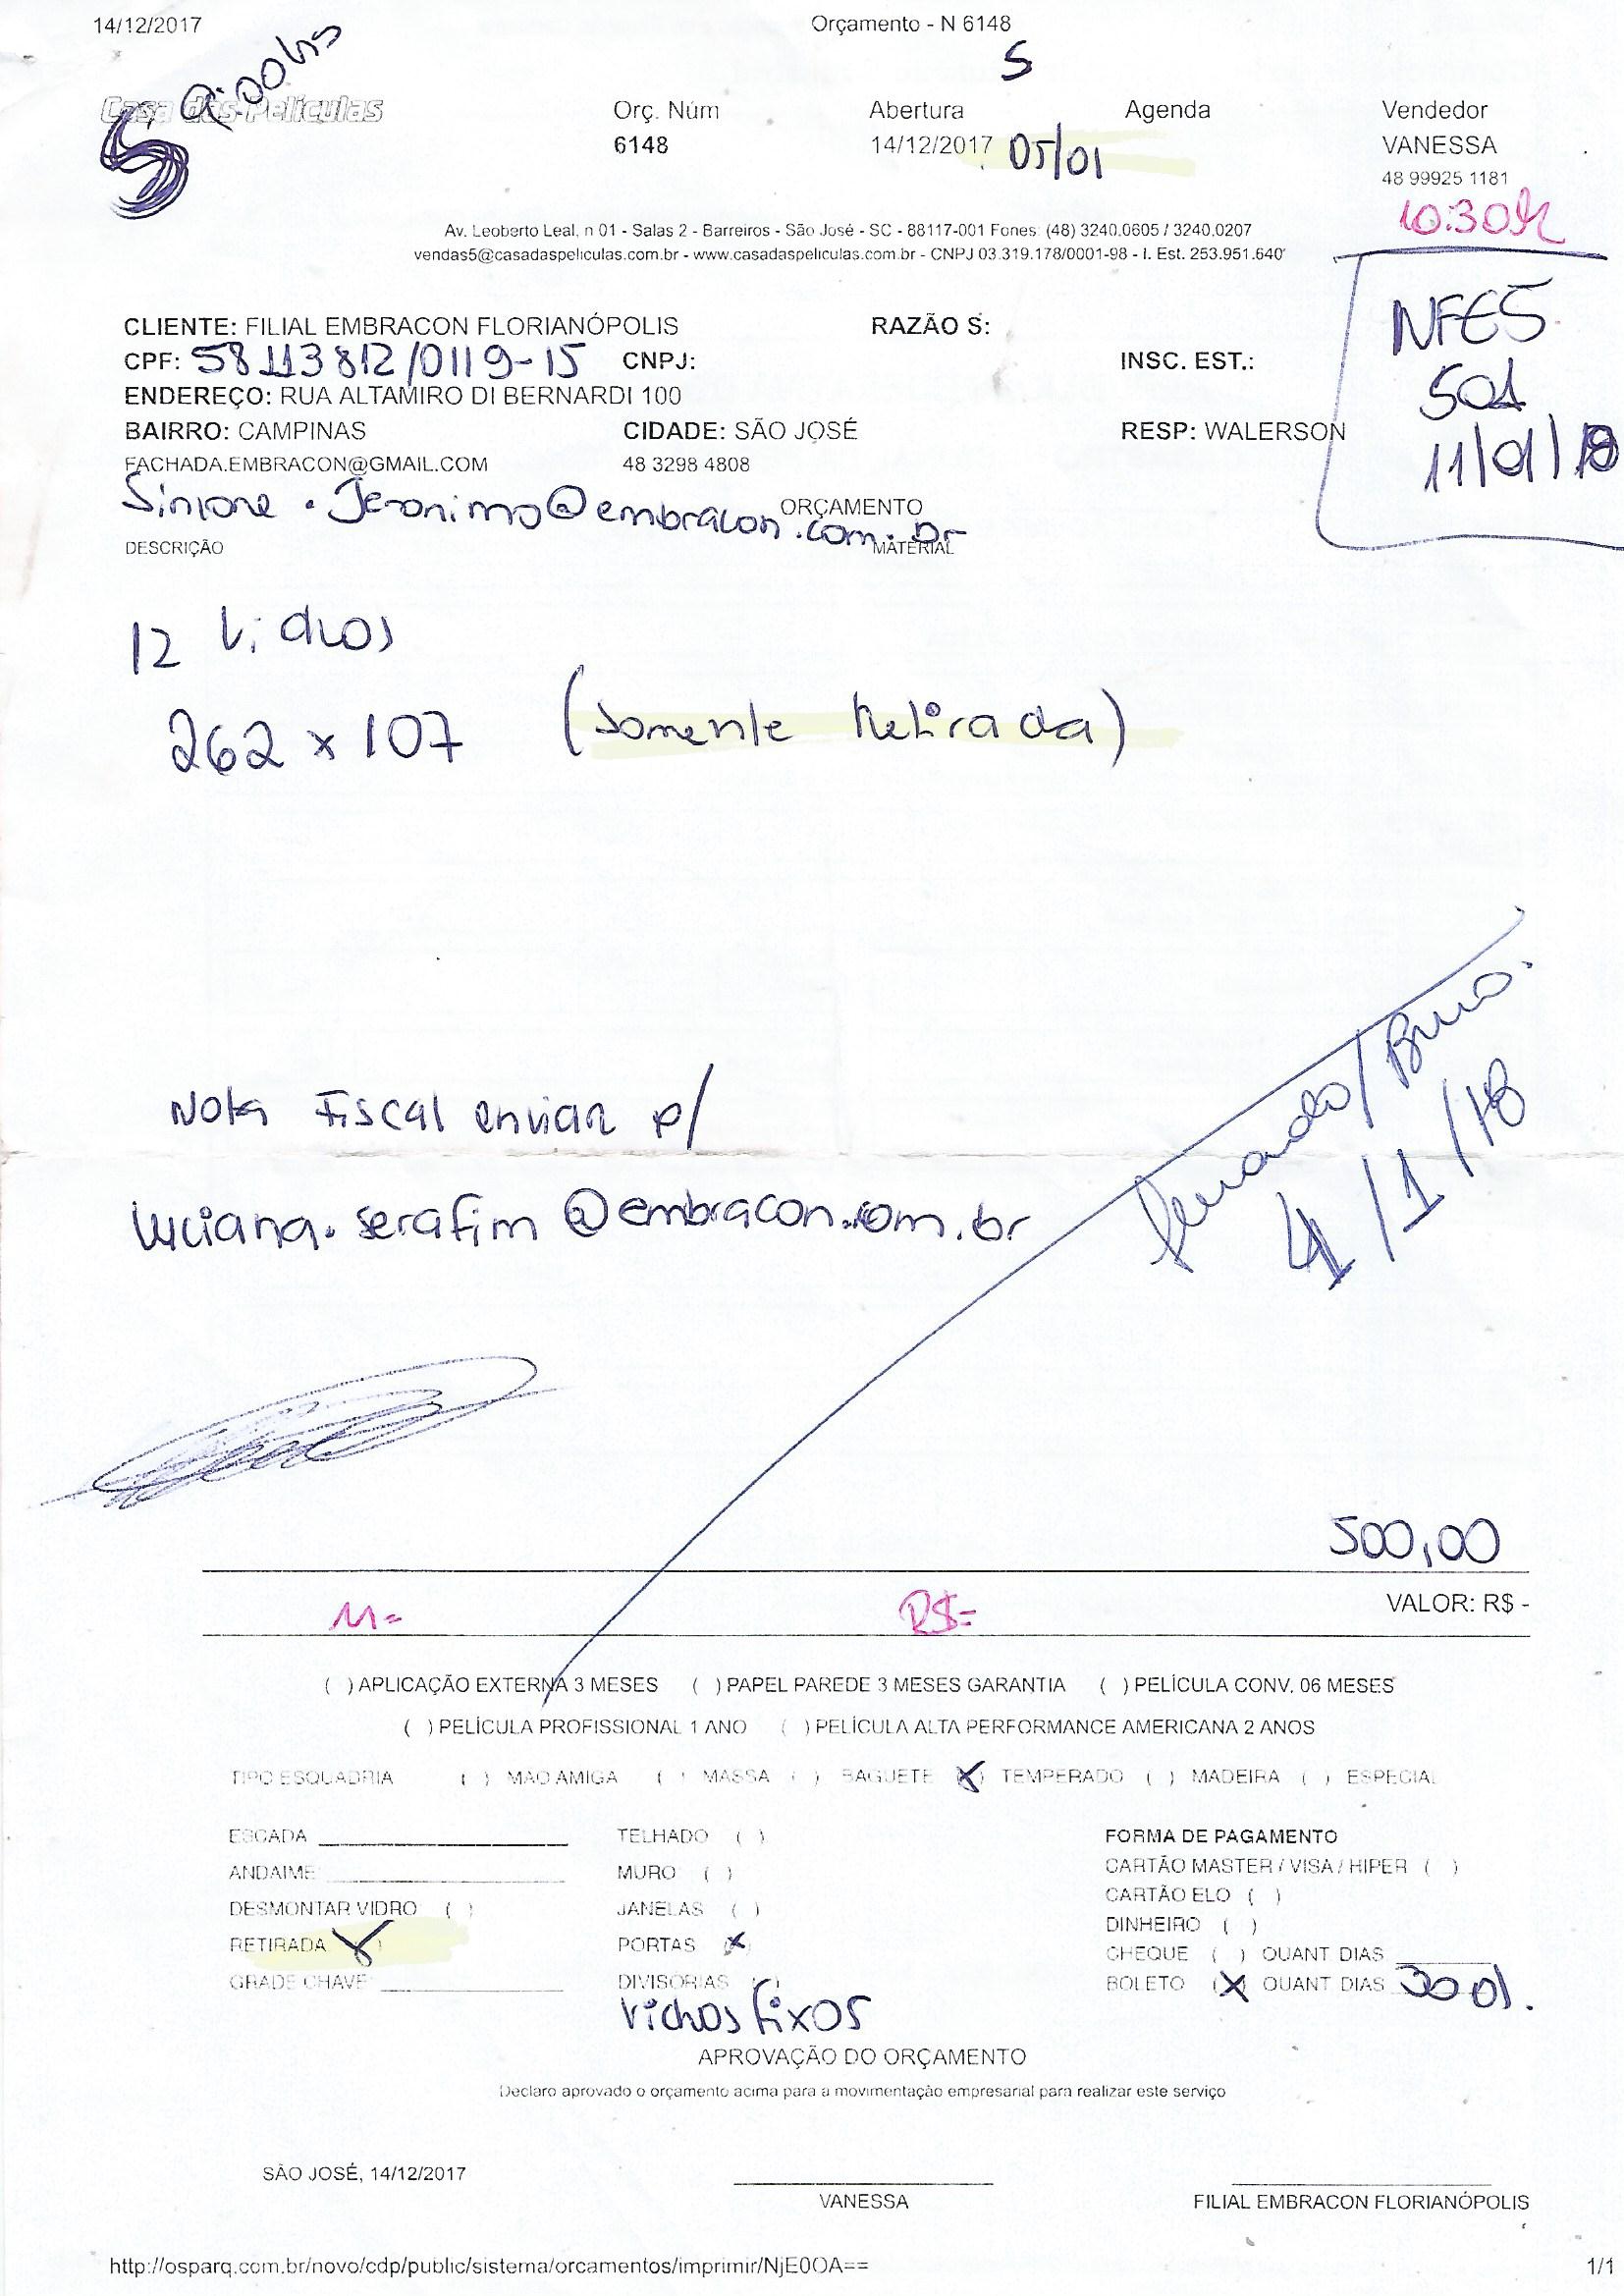 14/12/2017 Orçamento - N 6148
5
Casa das Películas Orç. Núm Abertura Agenda Vendedor
5 6148 14/12/2017 05/01 VANESSA
48 99925 1181
10:30h
Av. Leoberto Leal, n 01 - Salas 2 - Barreiros - São José - SC - 88117-001 Fones: (48) 3240.0605 / 3240.0207
vendas5@casadaspeliculas.com.br - www.casadaspeliculas.com.br - CNPJ 03.319.178/0001-98 - I. Est. 253.951.640
NFE5
501
11/01/18
CLIENTE: FILIAL EMBRACON FLORIANÓPOLIS RAZÃO S:
CPF: 58113812/0119-15 CNPJ: INSC. EST.:
ENDEREÇO: RUA ALTAMIRO DI BERNARDI 100
BAIRRO: CAMPINAS CIDADE: SÃO JOSÉ RESP: WALERSON
FACHADA.EMBRACON@GMAIL.COM 48 3298 4808
Simone.Jeronimo@embracon.com.br
ORÇAMENTO
DESCRIÇÃO MATERIAL
12 Vidros
262 x 107 (Somente Retirada)
Nota Fiscal enviar p/
luciana.serafim@embracon.com.br
4/1/18
500,00
M= R$=
VALOR: R$ -
( ) APLICAÇÃO EXTERNA 3 MESES ( ) PAPEL PAREDE 3 MESES GARANTIA ( ) PELÍCULA CONV. 06 MESES
( ) PELÍCULA PROFISSIONAL 1 ANO ( ) PELÍCULA ALTA PERFORMANCE AMERICANA 2 ANOS
TIPO ESQUADRIA ( ) MAO AMIGA ( ) MASSA ( ) BAGUETE (X) TEMPERADO ( ) MADEIRA ( ) ESPECIAL
ESCADA TELHADO ( ) FORMA DE PAGAMENTO
ANDAIME MURO ( ) CARTÃO MASTER / VISA / HIPER ( )
DESMONTAR VIDRO ( ) JANELAS ( ) CARTÃO ELO ( )
RETIRADA (X) PORTAS (X) DINHEIRO ( )
GRADE CHAVE DIVISORIAS ( ) CHEQUE ( ) QUANT DIAS
Vidros fixos BOLETO (X) QUANT DIAS 30 d.
APROVAÇÃO DO ORÇAMENTO
Declaro aprovado o orçamento acima para a movimentação empresarial para realizar este serviço
SÃO JOSÉ, 14/12/2017
VANESSA FILIAL EMBRACON FLORIANÓPOLIS
http://osparq.com.br/novo/cdp/public/sistema/orcamentos/imprimir/NjE0OA== 1/1